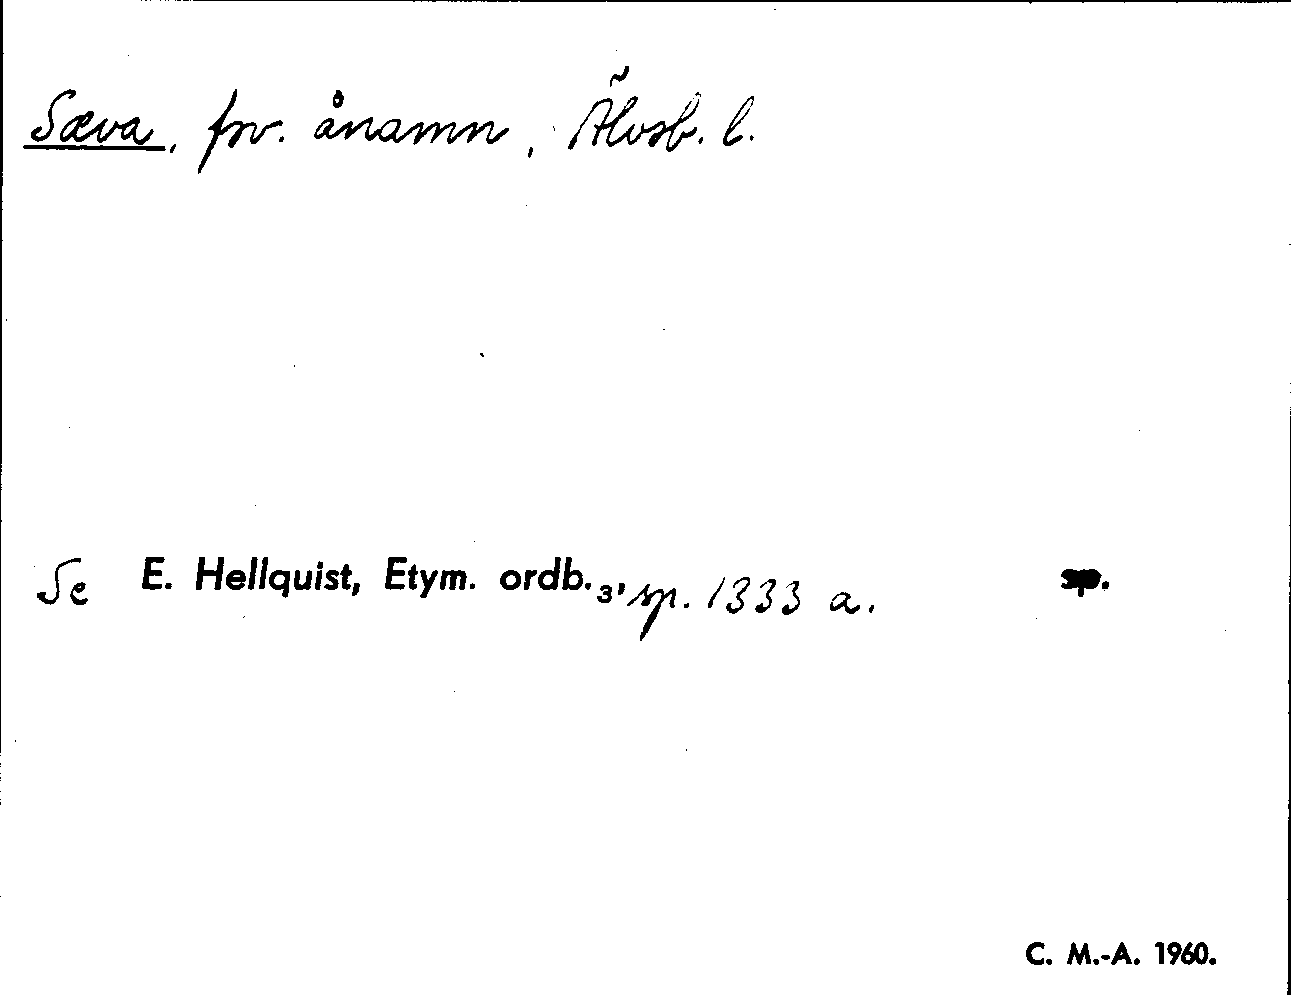 Sæva, frv. ånamn, Älvsb. l.
Se E. Hellquist, Etym. ordb.3, sp. 1333 a. sp.
C. M.-A. 1960.